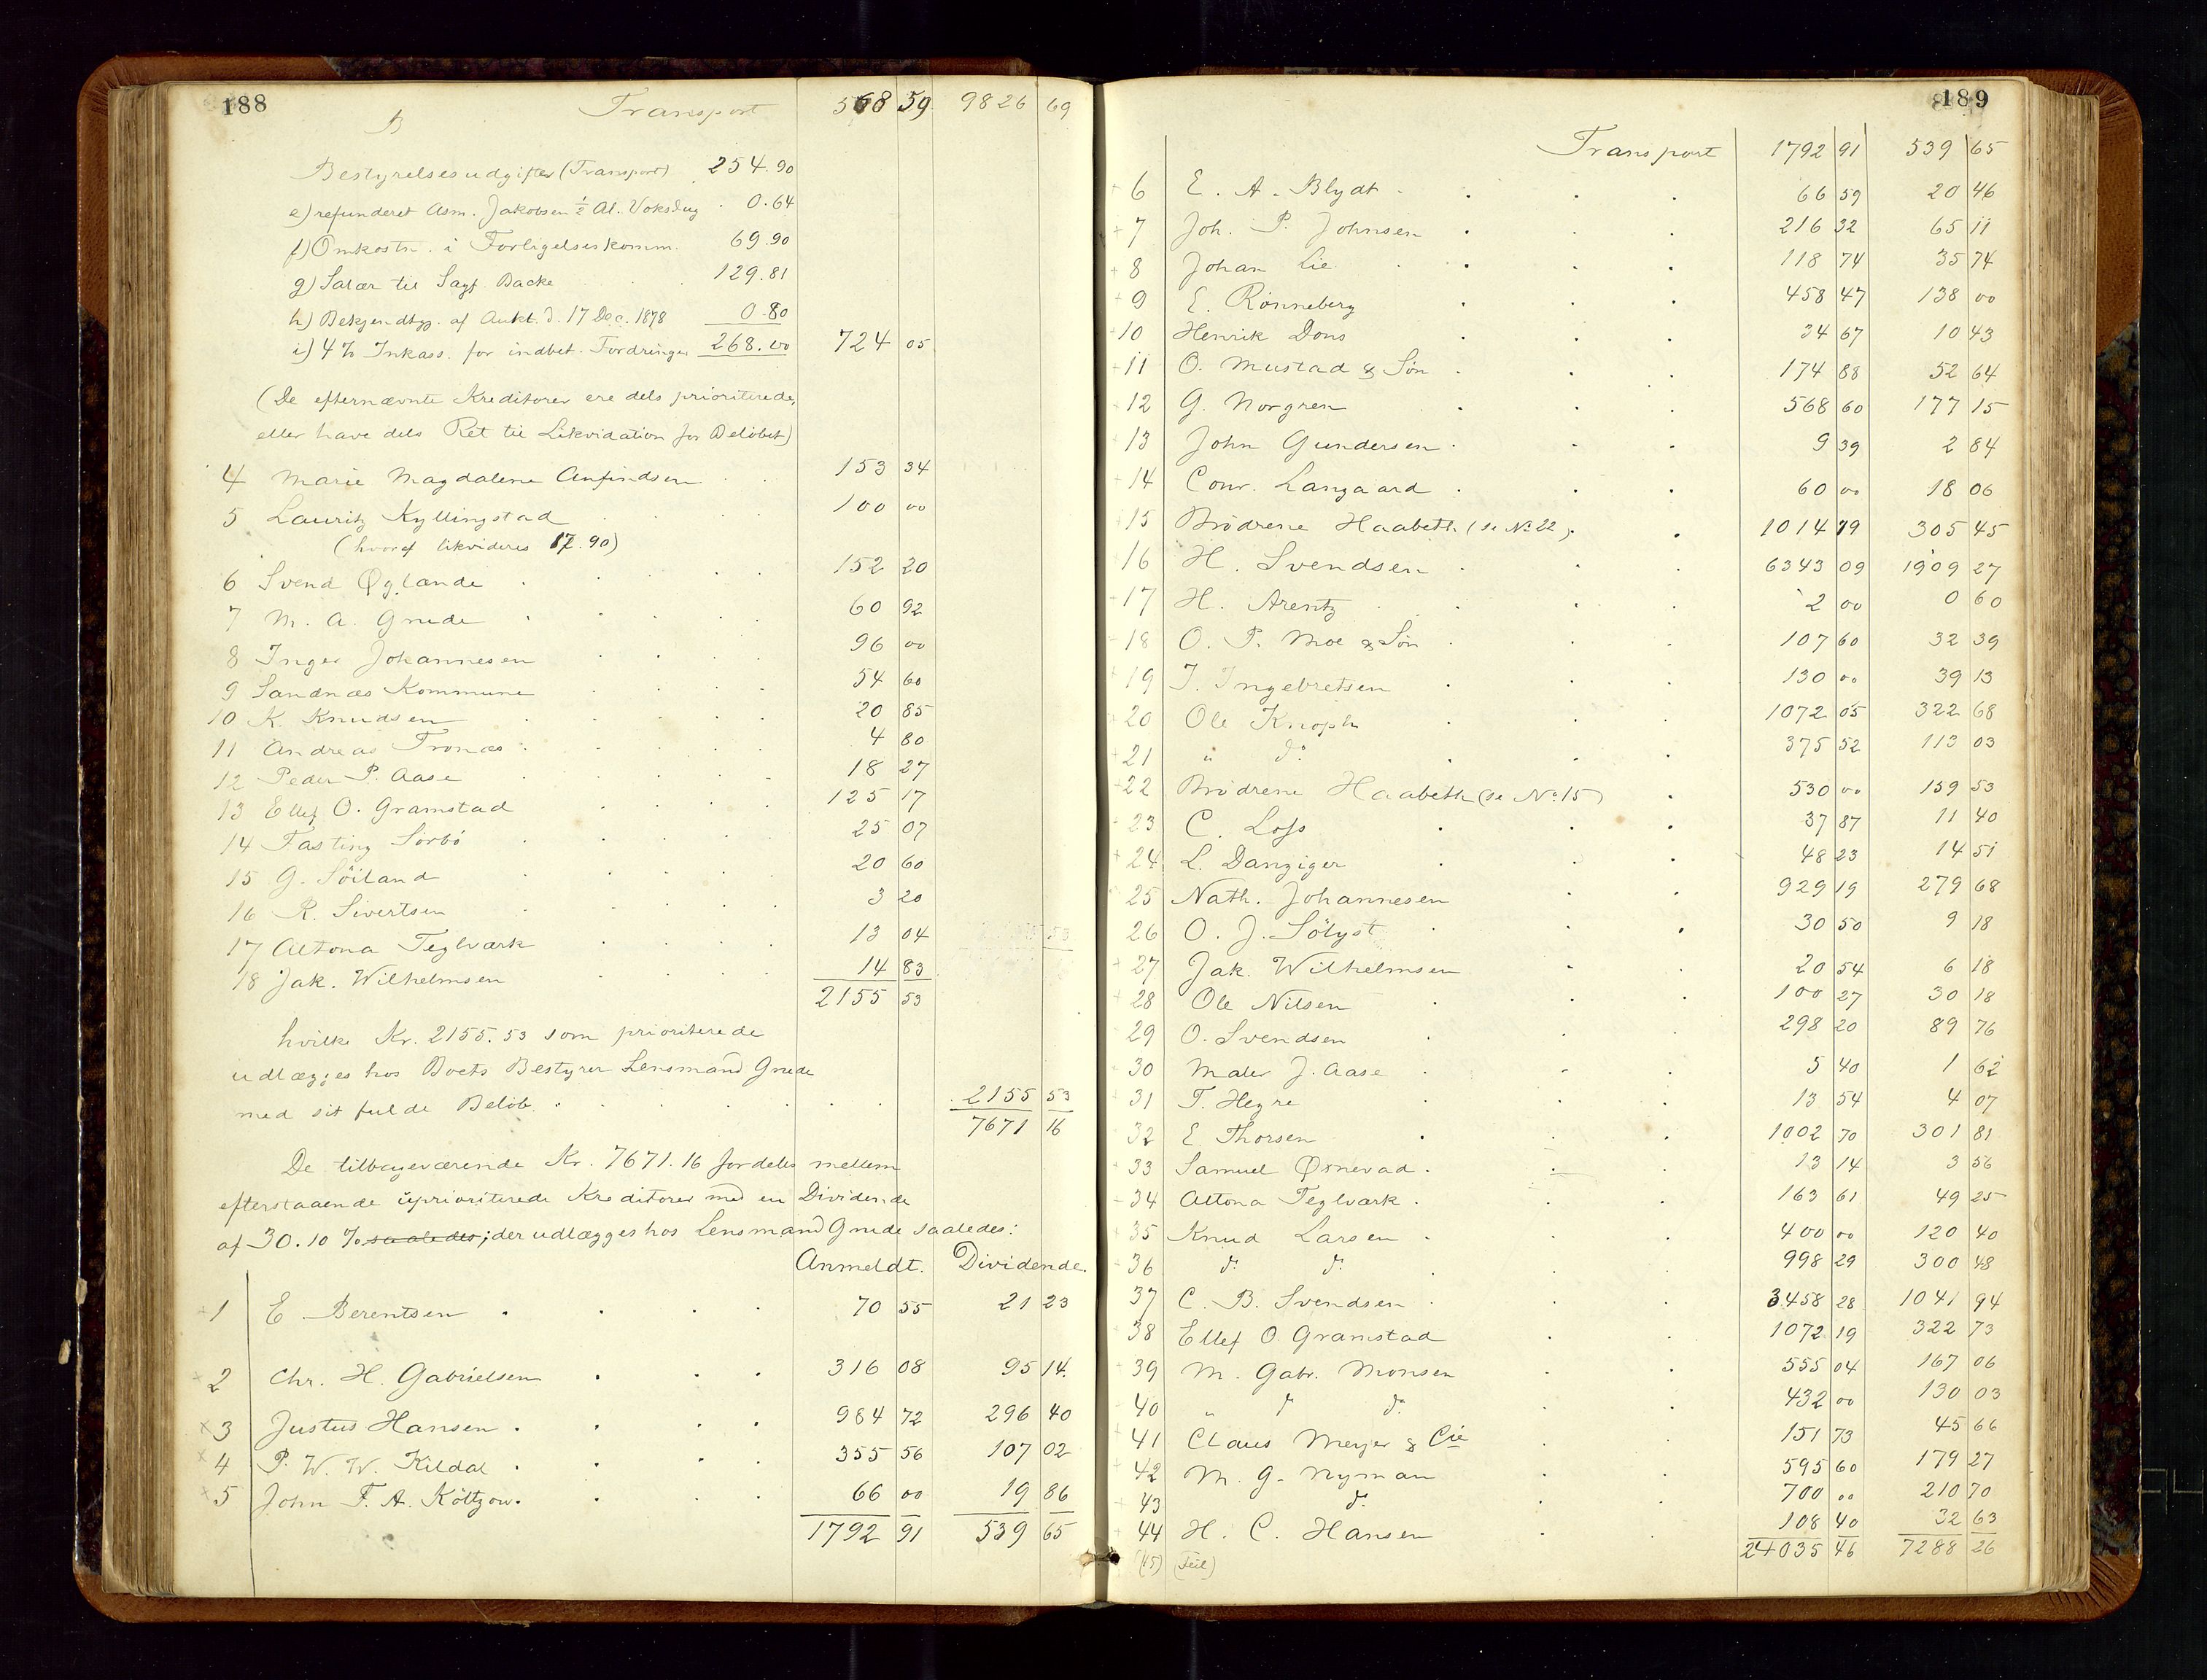 188
B Transport 568 59 9826 69
Bestyrelsesudgifter (Transport) 254.90
e) refunderet Asm. Jakobsen ½ Al. Voksdug . 0.64
f) Omkostn. i Forligelseskomm. 69.90
g) Salær til Sagf. Backe 129.81
h) Bekjendtgj. af Aukt. d. 17 Dec. 1878 0.80
i) 4% Inkass. for indbet. Fordringer 268.00 724 05
(De efternævnte Kreditorer ere dels prioriterede,
eller have dels Ret til Likvidation for Beløbet)
4 Marie Magdalene Anfindsen 153 34
5 Lauritz Kyllingstad 100 00
(hvoraf likvideres 17.90)
6 Svend Øglænde 152 20
7 M. A. Grude 60 92
8 Inger Johannesen 96 00
9 Sandnæs Kommune 54 60
10 K. Knudsen 20 85
11 Andreas Tronæs 4 80
12 Peder P. Aase 18 27
13 Ellef O. Gramstad 125 17
14 Fasting Sørbö 25 07
15 G. Söiland 20 60
16 R. Sivertsen 3 20
17 Altona Teglværk 13 04
18 Jak. Wilhelmsen 14 83
2155 53
hvilke Kr. 2155.53 som prioriterede
udlægges hos Boets Bestyrer Lensmand Grude
med sit fulde Beløb. 2155 53
7671 16
De tilbageværende Kr. 7671.16 fordeles mellem
efterstaaende uprioriterede Kreditorer med en Dividende
af 30.10 % saaledes; der udlægges hos Lensmand Grude saaledes:
Anmeldt. Dividende.
1 E. Berentsen 70 55 21 23
2 Chr. H. Gabrielsen 316 08 95 14.
3 Justus Hansen 984 72 296 40
4 P. W. W. Kildal 355 56 107 02
5 John F. A. Költzow. 66 00 19 86
1792 91 539 65
189
Transport 1792 91 539 65
6 E. A. Blydt 66 59 20 46
7 Joh. P. Johnsen 216 32 65 11
8 Johan Lie 118 74 35 74
9 E. Rønneberg 458 47 138 00
10 Henrik Dons 34 67 10 43
11 O. Mustad & Søn 174 88 52 64
12 G. Norgren 568 60 177 15
13 John Gundersen 9 39 2 84
14 Conr. Langaard 60 00 18 06
15 Brødrene Haabeth (se No 22). 1014 79 305 45
16 H. Svendsen 6343 09 1909 27
17 H. Arentz 2 00 0 60
18 O. P. Moe & Søn 107 60 32 39
19 J. Ingebretsen 130 00 39 13
20 Ole Knoph 1072 05 322 68
21 " do 375 52 113 03
22 Brødrene Haabeth (se No 15) 530 00 159 53
23 C. Loss 37 87 11 40
24 L. Danziger 48 23 14 51
25 Nath. Johannesen 929 19 279 68
26 O. J. Sölyst 30 50 9 18
27 Jak. Wilhelmsen 20 54 6 18
28 Ole Nilsen 100 27 30 18
29 O. Svendsen 298 20 89 76
30 Maler J. Aase 5 40 1 62
31 T. Hegre 13 54 4 07
32 E. Thorsen 1002 70 301 81
33 Samuel Øsnevad 13 14 3 56
34 Altona Teglværk 163 61 49 25
35 Knud Larsen 400 00 120 40
36 do do 998 29 300 48
37 C. B. Svendsen 3458 28 1041 94
38 Ellef O. Gramstad 1072 19 322 73
39 M. Gabr. Monsen 555 04 167 06
40 " do do 432 00 130 03
41 Claus Meyer & Cie 151 73 45 66
42 M. G. Nyman 595 60 179 27
43 do 700 00 210 70
44 H. C. Hansen 108 40 32 63
24035 46 7288 26
(45) (Feil)